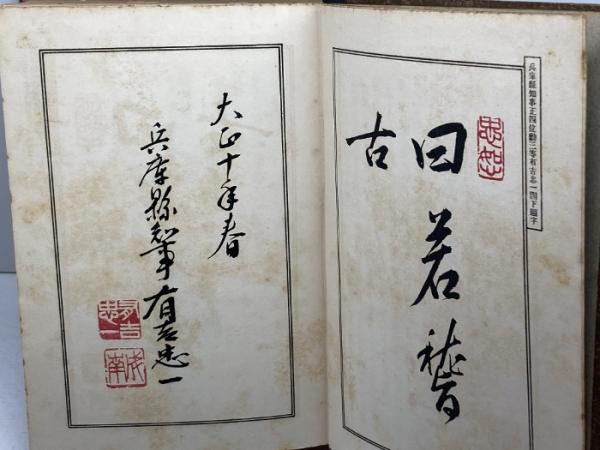 兵庫縣知事正四位勳三等有吉忠一閣下題字
忠恕
曰若稽
古
大正十年春
兵庫縣知事有吉忠一
有吉忠一